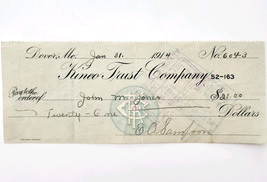 Dover, Mo. Jan 31. 1914 No. 604-3
Kinco Trust Company 52-163
Pay to the order of John M Jones $21.00
Twenty-One Dollars